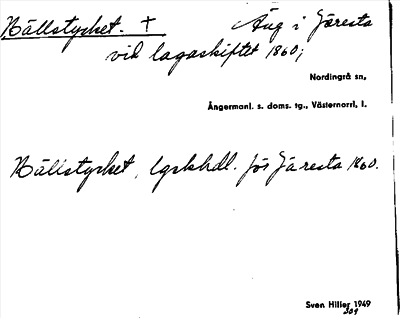 Bällstycket. † Äng i Järesta
vid lagaskiftet 1860;
Nordingrå sn,
Ångermanl. s. doms. tg., Västernorrl, l.
Bällstycket, lgskhdl. för Järesta 1860.
Sven Hiller 1949